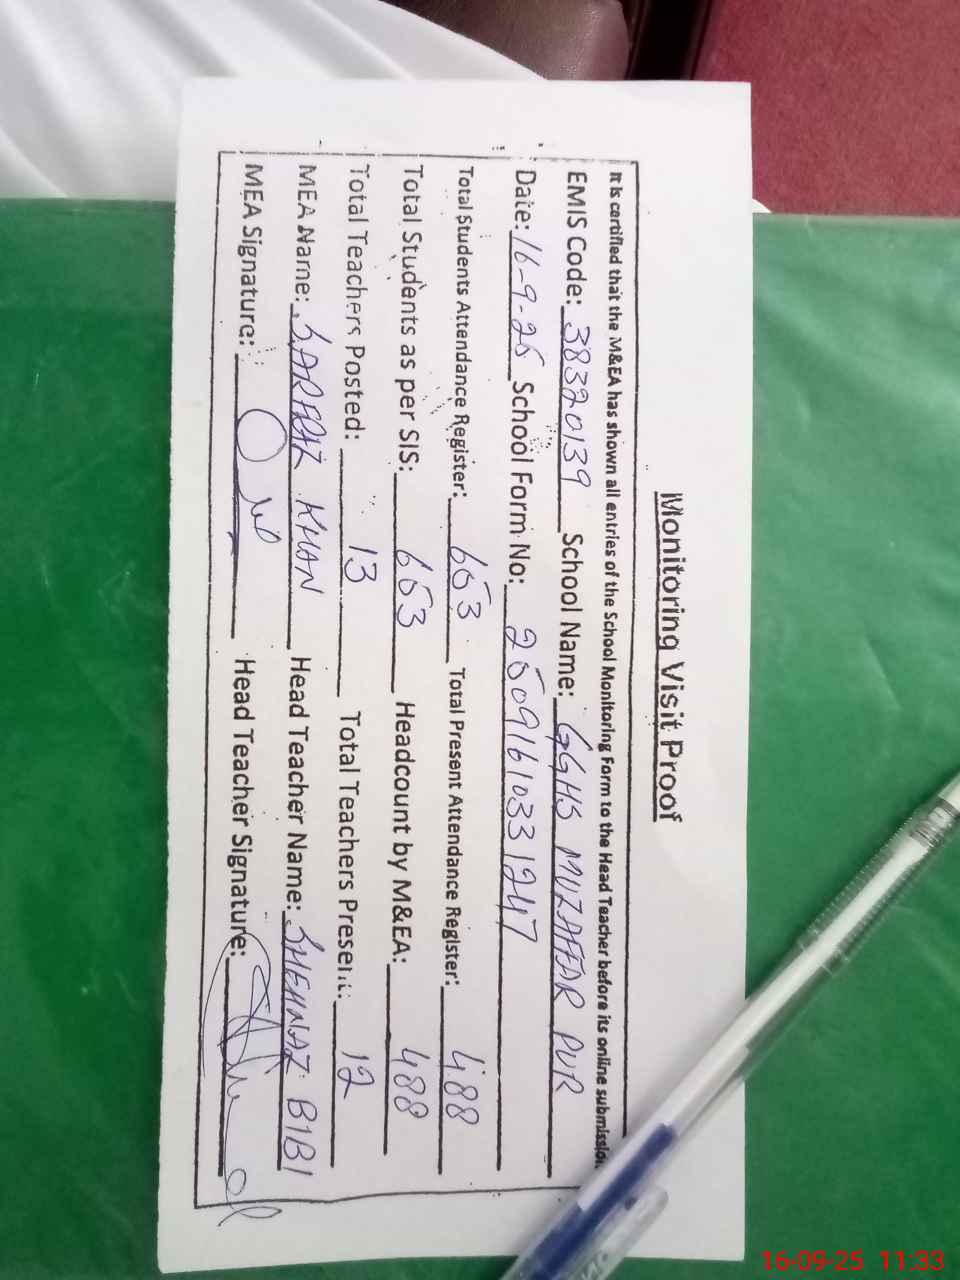 Monitoring Visit Proof
It is certified that the M&EA has shown all entries of the School Monitoring Form to the Head Teacher before its online submission.
EMIS Code: 38320139 School Name: GGHS MUZAFFAR PUR
Date: 16-9-25 School Form No: 25091610331247
Total Students Attendance Register: 653 Total Present Attendance Register: 488
Total Students as per SIS: 653 Headcount by M&EA: 488
Total Teachers Posted: 13 Total Teachers Present: 12
MEA Name: SARFRAZ KHAN Head Teacher Name: SHEHNAZ BIBI
MEA Signature: Head Teacher Signature:
16-09-25 11:33